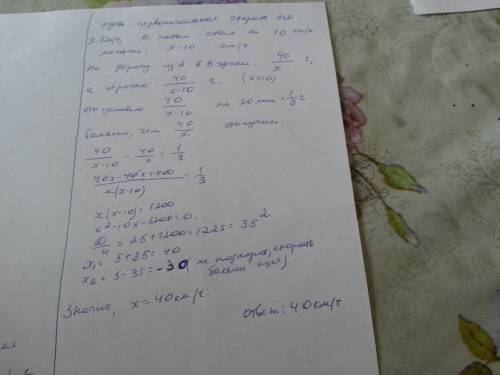 пусть первоначальная скорость его
x км/ч, а потом стала на 10 км/ч
меньше: x-10 км/ч.
На дорогу из А в В время: 40/x ч,
а обратно: 40/(x-10) ч. (x>10)
По условию 40/(x-10) на 20 мин = 1/3 ч
больше, чем 40/x получим:
40/(x-10) - 40/x = 1/3
(40x-40x+400)/(x(x-10)) = 1/3
x(x-10)=1200
x²-10x-1200=0.
D/4 = 25+1200=1225=35²
x₁= 5+35= 40
x₂= 5-35=-30( не подходит, скорость
больше нуля).
Значит, x=40км/ч.
Ответ: 40 км/ч.